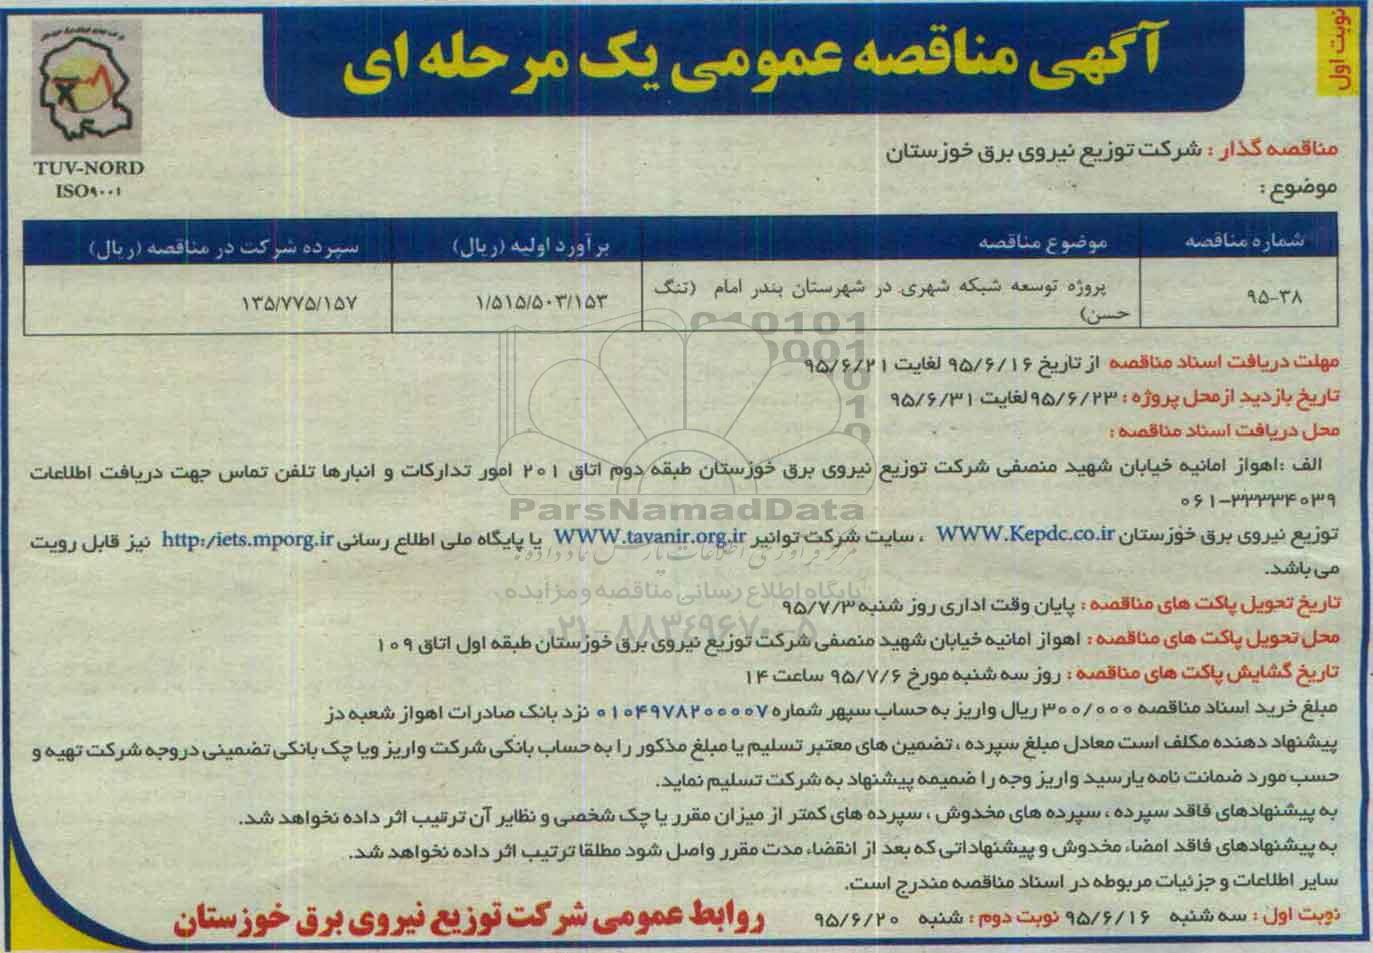 نوبت اول
آگهی مناقصه عمومی یک مرحله ای
TUV-NORD
ISO۹۰۰۱
مناقصه گذار : شرکت توزیع نیروی برق خوزستان
موضوع :
شماره مناقصه موضوع مناقصه برآورد اولیه (ریال) سپرده شرکت در مناقصه (ریال)
۹۵-۳۸ پروژه توسعه شبکه شهری در شهرستان بندر امام (تنگ حسن) ۱/۵۱۵/۵۰۳/۱۵۳ ۱۳۵/۷۷۵/۱۵۷
مهلت دریافت اسناد مناقصه از تاریخ ۹۵/۶/۱۶ لغایت ۹۵/۶/۲۱
تاریخ بازدید ازمحل پروژه : ۹۵/۶/۲۳لغایت ۹۵/۶/۳۱
محل دریافت اسناد مناقصه :
الف :اهواز امانیه خیابان شهید منصفی شرکت توزیع نیروی برق خوزستان طبقه دوم اتاق ۲۰۱ امور تدارکات و انبارها تلفن تماس جهت دریافت اطلاعات
۰۶۱-۳۳۳۳۴۰۳۹
توزیع نیروی برق خوزستان WWW.Kepdc.co.ir ، سایت شرکت توانیر WWW.tavanir.org.ir یا پایگاه ملی اطلاع رسانی http:/iets.mporg.ir نیز قابل رویت
می باشد.
تاریخ تحویل پاکت های مناقصه : پایان وقت اداری روز شنبه ۹۵/۷/۳
محل تحویل پاکت های مناقصه : اهواز امانیه خیابان شهید منصفی شرکت توزیع نیروی برق خوزستان طبقه اول اتاق ۱۰۹
تاریخ گشایش پاکت های مناقصه : روز سه شنبه مورخ ۹۵/۷/۶ ساعت ۱۴
مبلغ خرید اسناد مناقصه ۳۰۰/۰۰۰ ریال واریز به حساب سپهر شماره ۰۱۰۴۹۷۸۲۰۰۰۰۷ نزد بانک صادرات اهواز شعبه دز
پیشنهاد دهنده مکلف است معادل مبلغ سپرده ، تضمین های معتبر تسلیم یا مبلغ مذکور را به حساب بانکی شرکت واریز ویا چک بانکی تضمینی دروجه شرکت تهیه و
حسب مورد ضمانت نامه یارسید واریز وجه را ضمیمه پیشنهاد به شرکت تسلیم نماید.
به پیشنهادهای فاقد سپرده ، سپرده های مخدوش ، سپرده های کمتر از میزان مقرر یا چک شخصی و نظایر آن ترتیب اثر داده نخواهد شد.
به پیشنهادهای فاقد امضاء مخدوش و پیشنهاداتی که بعد از انقضاء مدت مقرر واصل شود مطلقا ترتیب اثر داده نخواهد شد.
سایر اطلاعات و جزئیات مربوطه در اسناد مناقصه مندرج است.
نوبت اول : سه شنبه ۹۵/۶/۱۶ نوبت دوم : شنبه ۹۵/۶/۲۰
روابط عمومی شرکت توزیع نیروی برق خوزستان
ParsNamadData
پایگاه اطلاع رسانی مناقصه و مزایده
۰۲۱-۸۸۳۴۹۶۷۰-۵